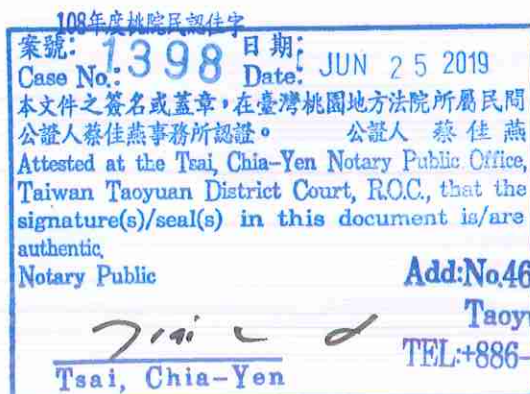 108年度桃院民認佳字
案號: 1398 日期:
Case No.: Date: JUN 25 2019
本文件之簽名或蓋章,在臺灣桃園地方法院所屬民間
公證人蔡佳燕事務所認證。 公證人 蔡佳燕
Attested at the Tsai, Chia-Yen Notary Public Office,
Taiwan Taoyuan District Court, R.O.C., that the
signature(s)/seal(s) in this document is/are
authentic.
Notary Public Add:No.46
Taoy
TEL:+886-
Tsai, Chia-Yen